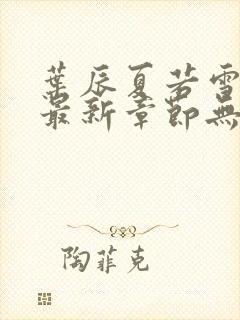 葉辰夏若雪
最新章節無
陶菲克